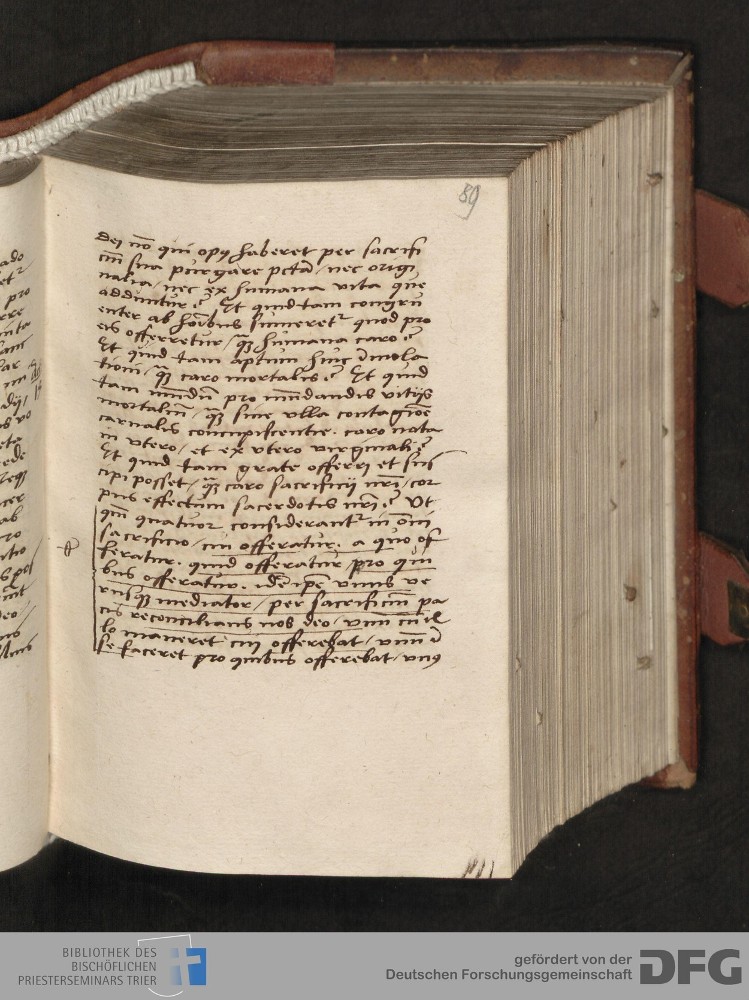 89
dei nō qui opꝰ haberet per sacrifi
ciū sua purgare pctā / nec origi
nalia / nec ex humana vita que
adduntur? Et quid tam congru
enter ab hoībus sumeret᷑ quod pro
eis offerretur / qꝫ humana caro?
Et quid tam aptum huic īmola
tioni / qꝫ caro mortalis? Et quid
tam mūdū pro mūdandis vitijs
mortaliū / qꝫ sine vlla contagiōe
carnalis concupiscentie. caro nata
in vtero / et ex vtero virginali?
Et quid tam grate offerri et sus
cipi posset / qꝫ caro sacrificij nrī / cor
pus effectum sacerdotis nrī? Vt
qm̄ quatuor considerant᷑ in oīni
sacrificio / cui offeratur. a quo of
feratur. quid offeratur / pro qui
bus offeratur. idē ipē vnus ve
rusqꝫ mediator / per sacrificiū pa
cis reconcilians nos deo / vnū cū il
lo maneret cui offerebat / vnū ī
se faceret pro quibus offerebat / vnꝰ
BIBLIOTHEK DES
BISCHÖFLICHEN
PRIESTERSEMINARS TRIER
gefördert von der
Deutschen Forschungsgemeinschaft
DFG